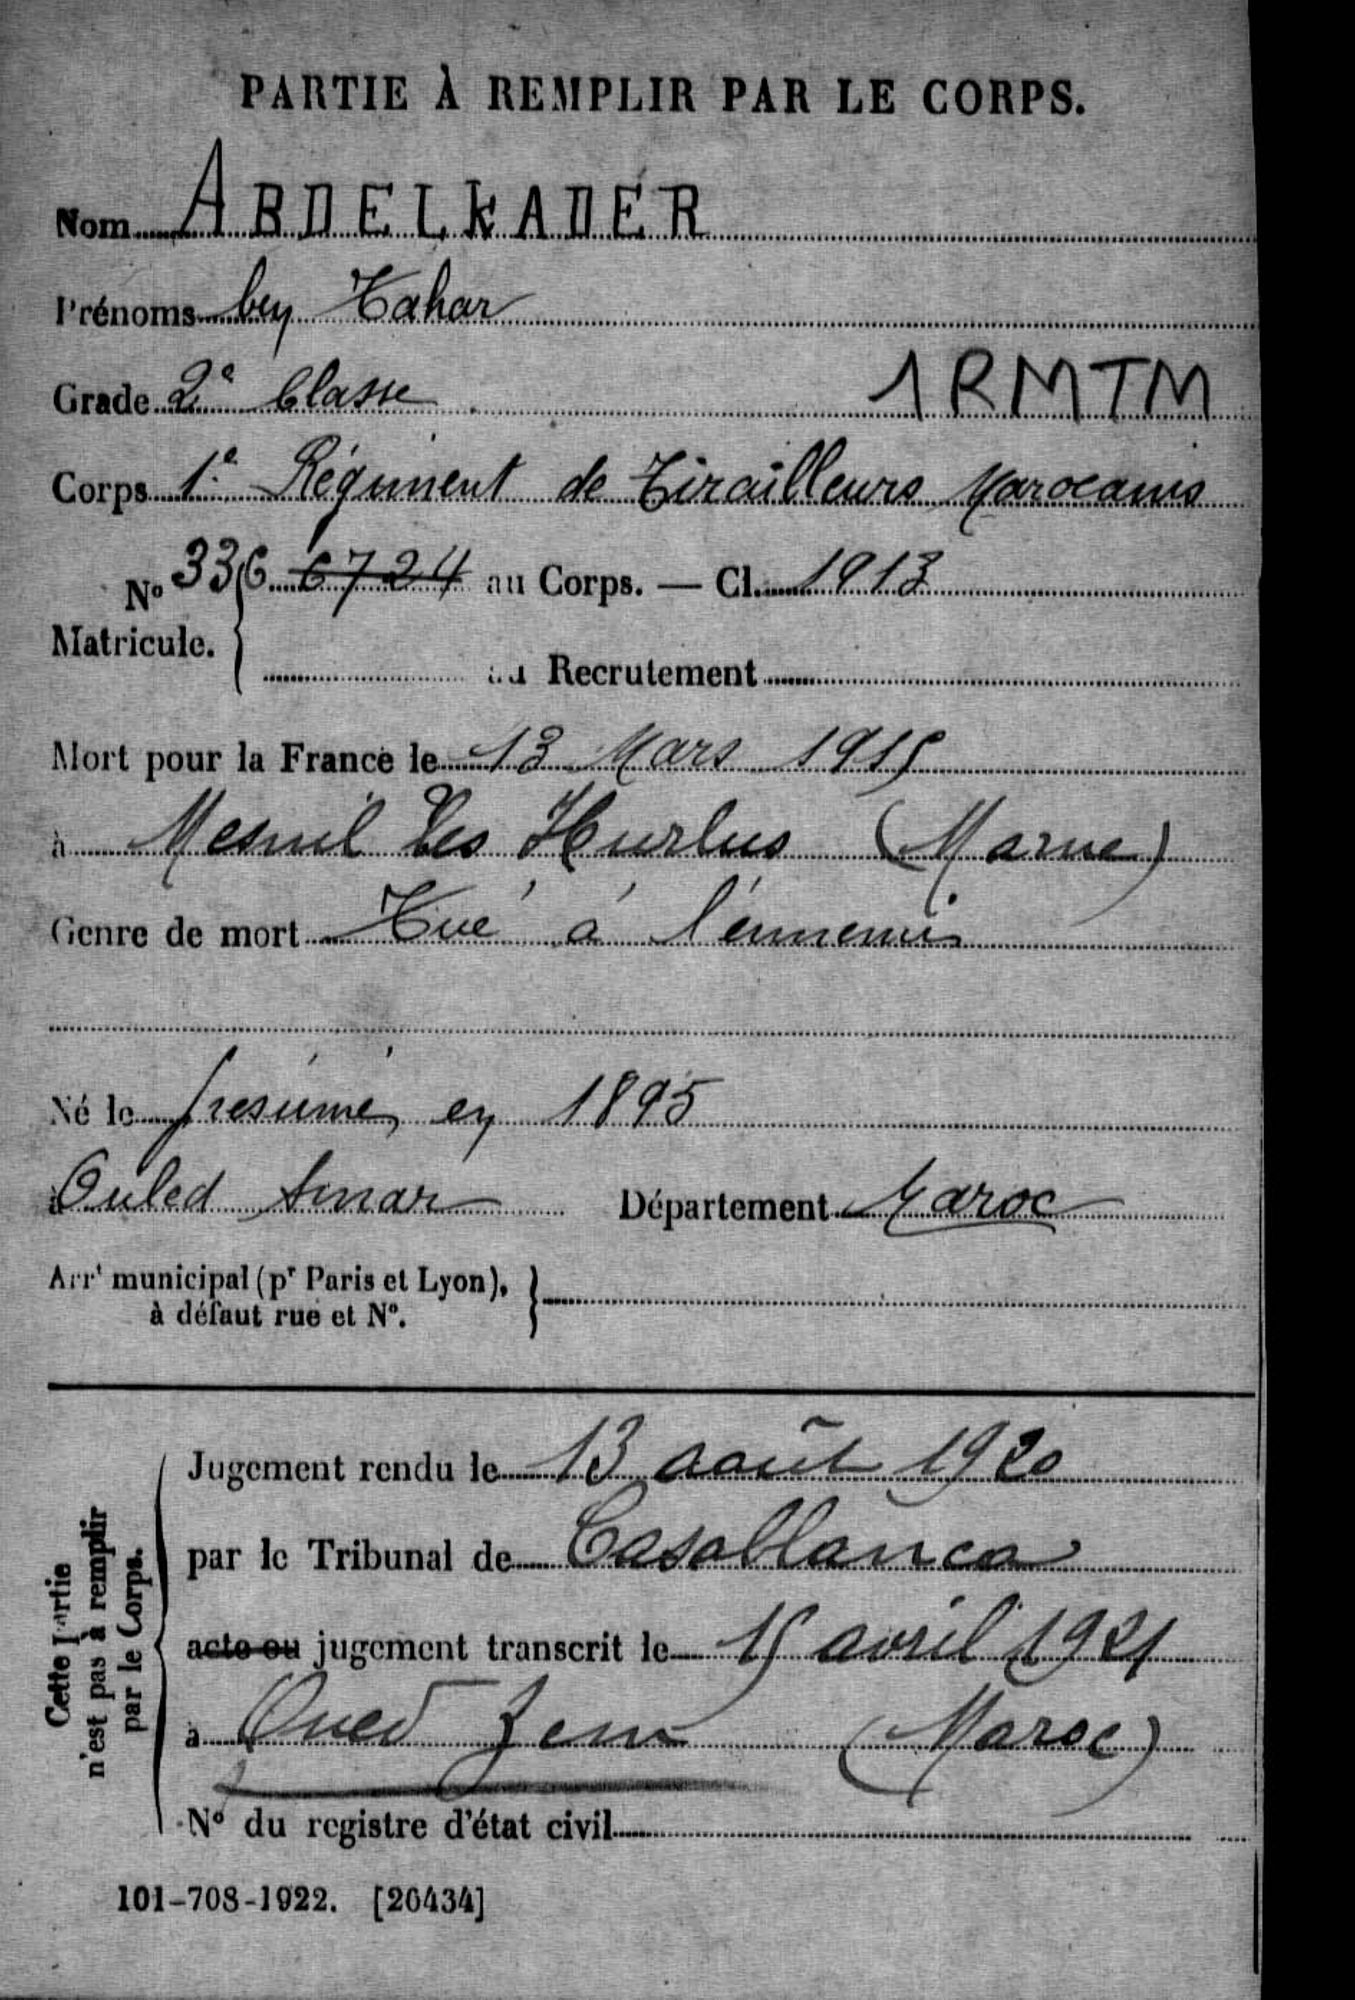 PARTIE À REMPLIR PAR LE CORPS.
Nom ABDELKADER
Prénoms ben Tahar
Grade 2e Classe 1RMTM
Corps 1e Régiment de Tirailleurs Marocains
No Matricule. 336 6724 au Corps. — Cl. 1913
au Recrutement
Mort pour la France le 13 Mars 1915
à Mesnil Les Hurlus (Marne)
Genre de mort Tué à l'ennemi
Né le présumé en 1895
à Ouled Amar Département Maroc
Arrt municipal (pr Paris et Lyon),
à défaut rue et No.
Cette partie
n'est pas à remplir
par le Corps.
Jugement rendu le 13 août 1920
par le Tribunal de Casablanca
acte ou jugement transcrit le 15 avril 1921
à Oued Zem (Maroc)
No du registre d'état civil
101-708-1922. [20434]